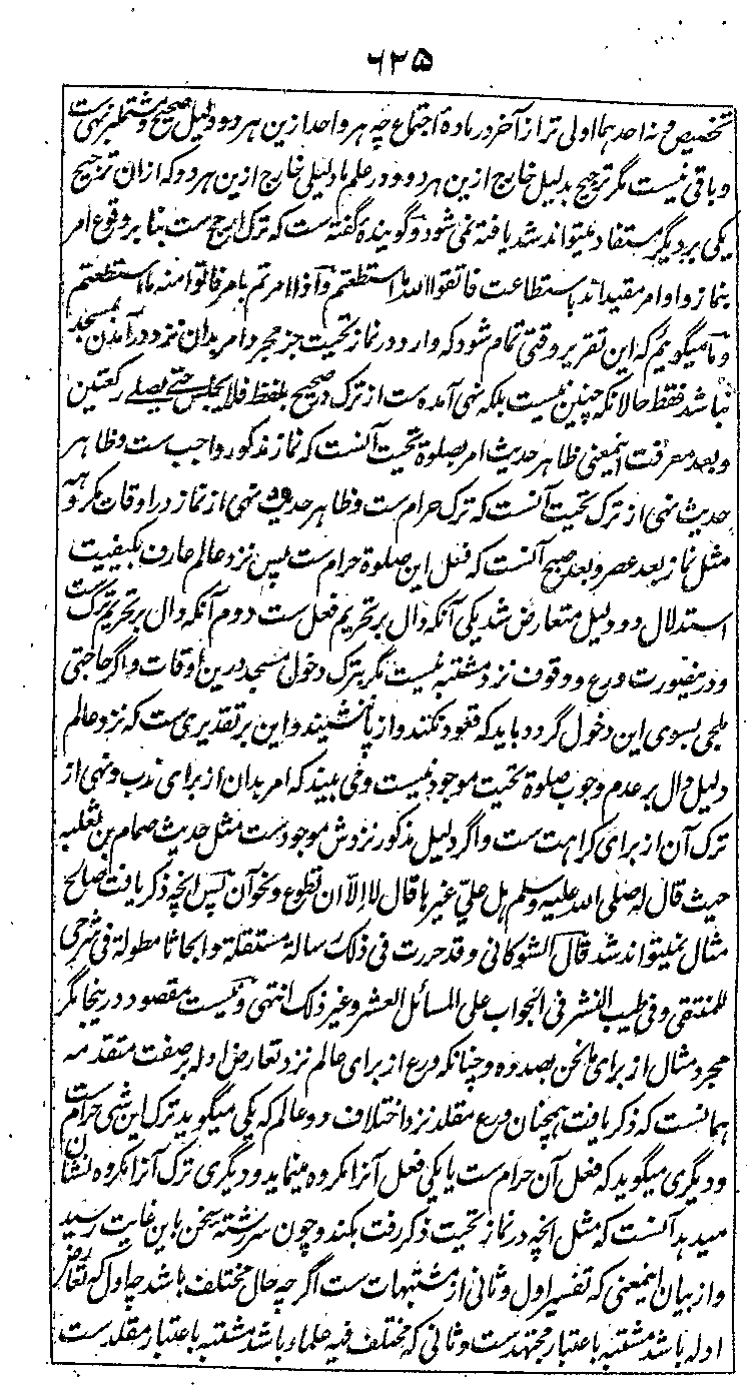 ۶۲۵
تخصیص ونہ احدہما اولی تر از آخر در مادۂ اجتماع چہ ہر واحد ازین ہر دو دلیل صحیح ومشتملبرنہی ست
وباقی نیست مگر ترجیح بدلیل خارج ازین ہر دو ودر علم ما دلیلی خارج ازین ہر دو کہ ازان ترجیح
یکی بر دیگر مستفاد میتواند شد یافتہ نمی شود وگویندہ گفتہ ست کہ ترک ارجح ست بنا بر وقوع امر
بنماز واوامر مقید اند باستطاعت فاتقوا اللہ ما استطعتم وآذا امرتم بامر فاتوا منہ ما استطعتم
وما میگوئیم کہ این تقریر وقتی تمام شود کہ وارد در نماز تحیت جز مجرد امر بدان نزد درآمدن بمسجد
نباشد فقط حالانکہ چنین نیست بلکہ نہی آمدہ ست از ترک در صحیح بلفظ فلا یجلس حتے یصلے رکعتین
وبعد معرفت اینمعنی ظاہر حدیث امر بصلوۃ تحیت آنست کہ نماز مذکور واجب ست وظاہر
حدیث نہی از ترک تحیت آنست کہ ترک حرام ست وظاہر حدیث نہی از نماز در اوقات مکروہہ
مثل نماز بعد عصر وبعد صبح آنست کہ فعل این صلوۃ حرام ست پس نزد عالم عارف بکیفیت
استدلال دو دلیل متعارض شد یکی آنکہ دال بر تحریم فعل ست دوم آنکہ دال بر تحریم ترک ست
ودرینصورت ورع ووقوف نزد مشتبہ نیست مگر بترک دخول مسجد درین اوقات واگر حاجتی
ملجی بسوی این دخول گردد باید کہ قعود نکند واز پا ننشیند واین بر تقدیری ست کہ نزد عالم
دلیل دال بر عدم وجوب صلوۃ تحیت موجود نیست ومی بیند کہ امر بدان از برای ندب ونہی از
ترک آن از برای کراہت ست واگر دلیل مذکور نزدش موجود ست مثل حدیث ضمام بن ثعلبہ
حیث قال لہ صلی اللہ علیہ وسلم ہل علیّ غیرہا قال لا الا ان تطوع ونحو آن پس انچہ ذکر یافت صالح
مثال نمیتواند شد قال الشوکانی وقد حررت فی ذلک رسالۃ مستقلۃ وابحاثا مطولۃ فی شرحی
للمنتقی وفی طیب النشر فی الجواب علی المسائل العشر وغیر ذلک انتہی ونیست مقصود درینجا مگر
مجرد مثال از برای ما نحن بصددہ وچنانکہ ورع از برای عالم نزد تعارض ادلہ بر صفت متقدمہ
ہمانست کہ ذکر یافت ہمچنان ورع مقلد نزد اختلاف دو عالم کہ یکی میگوید ترک این شی حرام ست
ودیگری میگوید کہ فعل آن حرام ست یا یکی فعل آنرا مکروہ مینماید ودیگری ترک آنرا مکروہ نشان
میدہد آنست کہ مثل انچہ در نماز تحیت ذکر رفت بکند وچون سررشتۂ سخن باین غایت رسید
واز بیان اینمعنی کہ تفسیر اول وثانی از مشتبہات ست اگرچہ حال مختلف باشد چہ اول کہ تعارض
ادلہ باشد مشتبہ باعتبار مجتہد ست وثانی کہ مختلف فیہ علماء باشد مشتبہ باعتبار مقلد ست